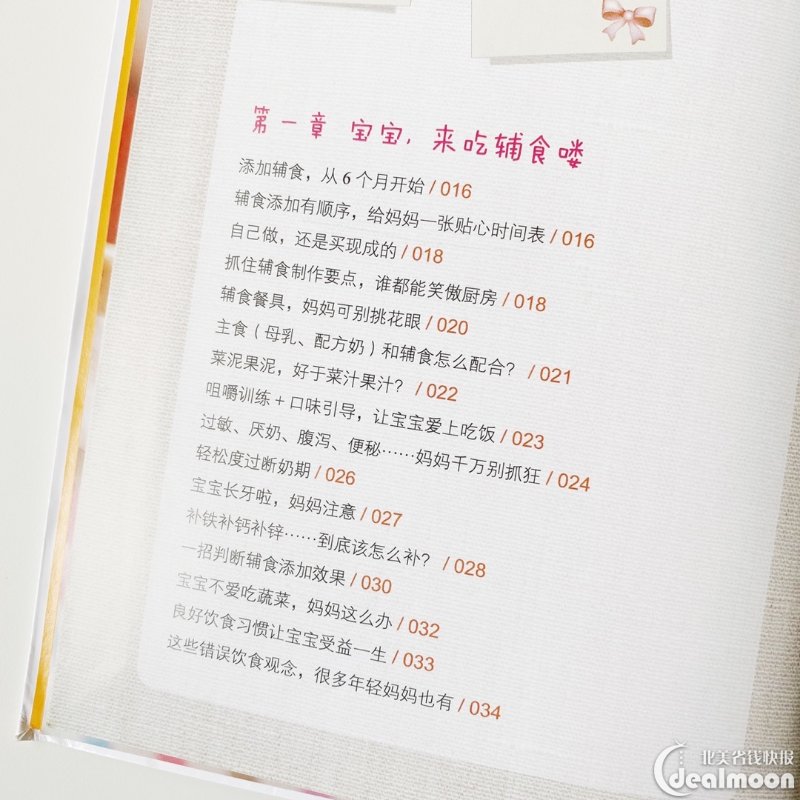 第一章 宝宝，来吃辅食喽
添加辅食，从6个月开始 / 016
辅食添加有顺序，给妈妈一张贴心时间表 / 016
自己做，还是买现成的 / 018
抓住辅食制作要点，谁都能笑傲厨房 / 018
辅食餐具，妈妈可别挑花眼 / 020
主食（母乳、配方奶）和辅食怎么配合？ / 021
菜泥果泥，好于菜汁果汁？ / 022
咀嚼训练＋口味引导，让宝宝爱上吃饭 / 023
过敏、厌奶、腹泻、便秘……妈妈千万别抓狂 / 024
轻松度过断奶期 / 026
宝宝长牙啦，妈妈注意 / 027
补铁补钙补锌……到底该怎么补？ / 028
一招判断辅食添加效果 / 030
宝宝不爱吃蔬菜，妈妈这么办 / 032
良好饮食习惯让宝宝受益一生 / 033
这些错误饮食观念，很多年轻妈妈也有 / 034
北美省钱快报
dealmoon